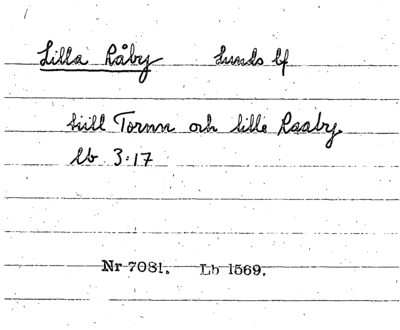 Lilla Råby Lunds lf
tiill Tornn och lille Raaby
lb 3:17
Nr 7081. Lb 1569.